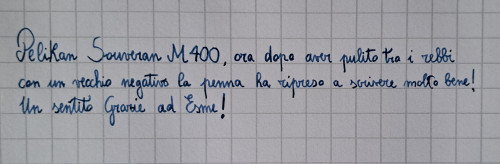 Pelikan Souveran M400, ora dopo aver pulito tra i rebbi
con un vecchio negativo la penna ha ripreso a scrivere molto bene!
Un sentito Grazie ad Esme!